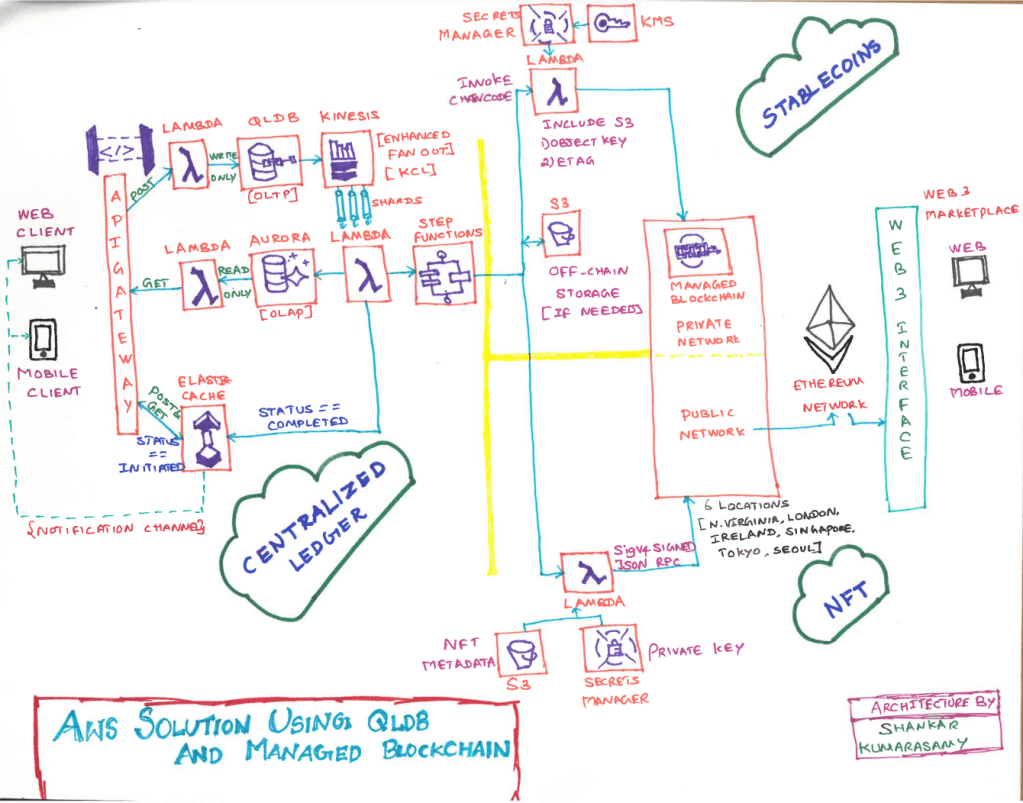 SECRETS
MANAGER
KMS
LAMBDA
INVOKE
CHAINCODE
INCLUDE S3
1) OBJECT KEY
2) ETAG
STABLECOINS
LAMBDA
QLDB
KINESIS
</>
POST
WRITE
ONLY
[OLTP]
[ENHANCED
FAN OUT]
[KCL]
SHARDS
API GATEWAY
WEB
CLIENT
MOBILE
CLIENT
LAMBDA
AURORA
LAMBDA
STEP
FUNCTIONS
GET
READ
ONLY
[OLAP]
S3
OFF-CHAIN
STORAGE
[IF NEEDED]
MANAGED
BLOCKCHAIN
PRIVATE
NETWORK
PUBLIC
NETWORK
ETHEREUM
NETWORK
WEB3 INTERFACE
WEB 3
MARKETPLACE
WEB
MOBILE
ELASTI
CACHE
POST &
GET
STATUS
==
INITIATED
STATUS ==
COMPLETED
{NOTIFICATION CHANNEL}
CENTRALIZED
LEDGER
6 LOCATIONS
[N.VIRGINIA, LONDON,
IRELAND, SINGAPORE,
TOKYO, SEOUL]
SIGV4 SIGNED
JSON RPC
LAMBDA
NFT
NFT
METADATA
S3
SECRETS
MANAGER
PRIVATE KEY
AWS SOLUTION USING QLDB
AND MANAGED BLOCKCHAIN
ARCHITECTURE BY
SHANKAR
KUMARASAMY